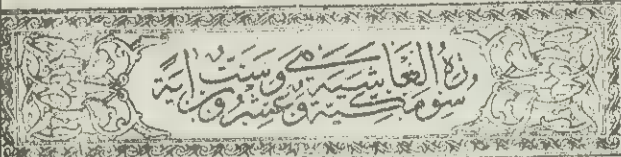 سورة الغاشية مكية وهي ست وعشرون آية